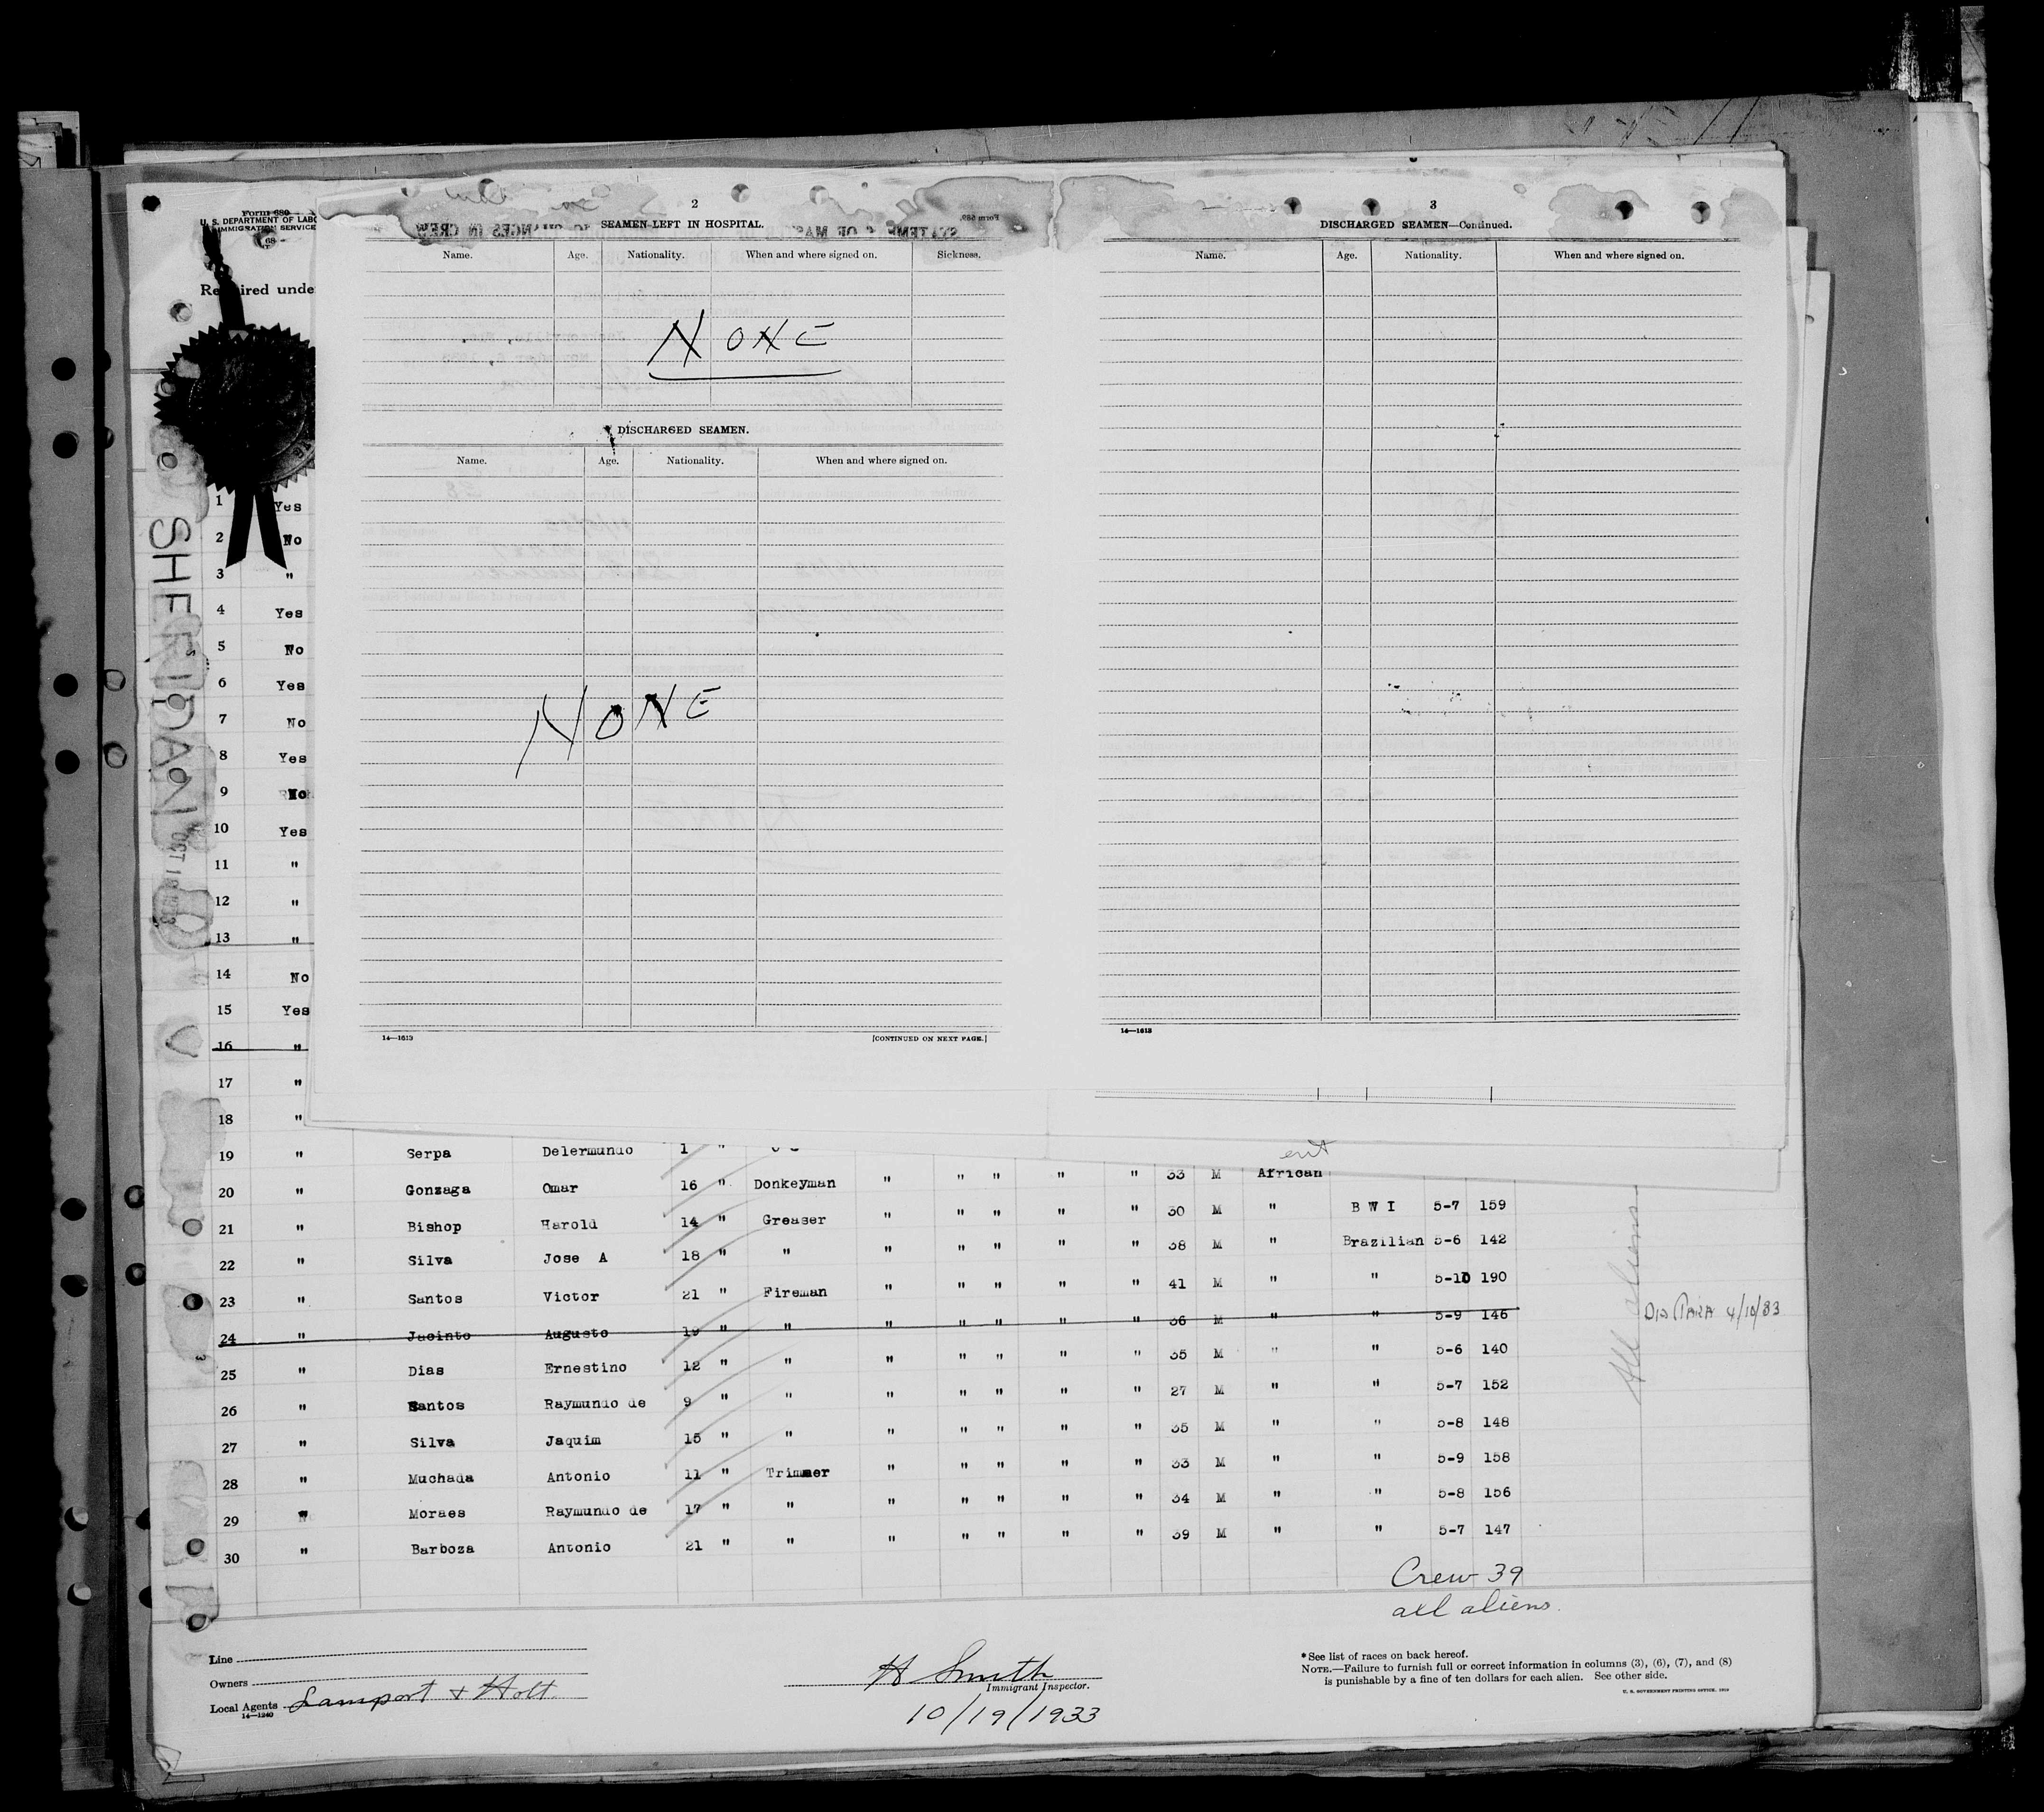 Form 680
U. S. DEPARTMENT OF LABO
IMMIGRATION SERVICE
Required unde
SHERIDAN
OCT 19 1933
2
SEAMEN LEFT IN HOSPITAL.
Name. Age. Nationality. When and where signed on. Sickness.
NONE
DISCHARGED SEAMEN.
Name. Age. Nationality. When and where signed on.
NONE
14—1613 [CONTINUED ON NEXT PAGE.]
3
DISCHARGED SEAMEN—Continued.
Name. Age. Nationality. When and where signed on.
14—1613
1 Yes
2 No
3 "
4 Yes
5 No
6 Yes
7 No
8 Yes
9 No
10 Yes
11 "
12 "
13 "
14 No
15 Yes
16 "
17 "
18 "
19 " Serpa Delermundo 1 "
20 " Gonzaga Omar 16 " Donkeyman " " " " " 33 M African
21 " Bishop Harold 14 " Greaser " " " " " 30 M " B W I 5-7 159
22 " Silva Jose A 18 " " " " " " " 38 M " Brazilian 5-6 142
23 " Santos Victor 21 " Fireman " " " " " 41 M " " 5-10 190
24 " Jacinto Augusto 19 " " " " " " " 36 M " " 5-9 146
25 " Dias Ernestino 12 " " " " " " " 35 M " " 5-6 140
26 " Santos Raymundo de 9 " " " " " " " 27 M " " 5-7 152
27 " Silva Jaquim 15 " " " " " " " 35 M " " 5-8 148
28 " Muchada Antonio 11 " Trimmer " " " " " 33 M " " 5-9 158
29 " Moraes Raymundo de 17 " " " " " " " 34 M " " 5-8 156
30 " Barboza Antonio 21 " " " " " " " 39 M " " 5-7 147
All aliens
4/10/33
Crew 39
all aliens.
Line
Owners
Local Agents Lamport & Holt.
14—1240
H Smith
Immigrant Inspector.
10/19/1933
* See list of races on back hereof.
NOTE.—Failure to furnish full or correct information in columns (3), (6), (7), and (8)
is punishable by a fine of ten dollars for each alien. See other side.
U. S. GOVERNMENT PRINTING OFFICE, 1929